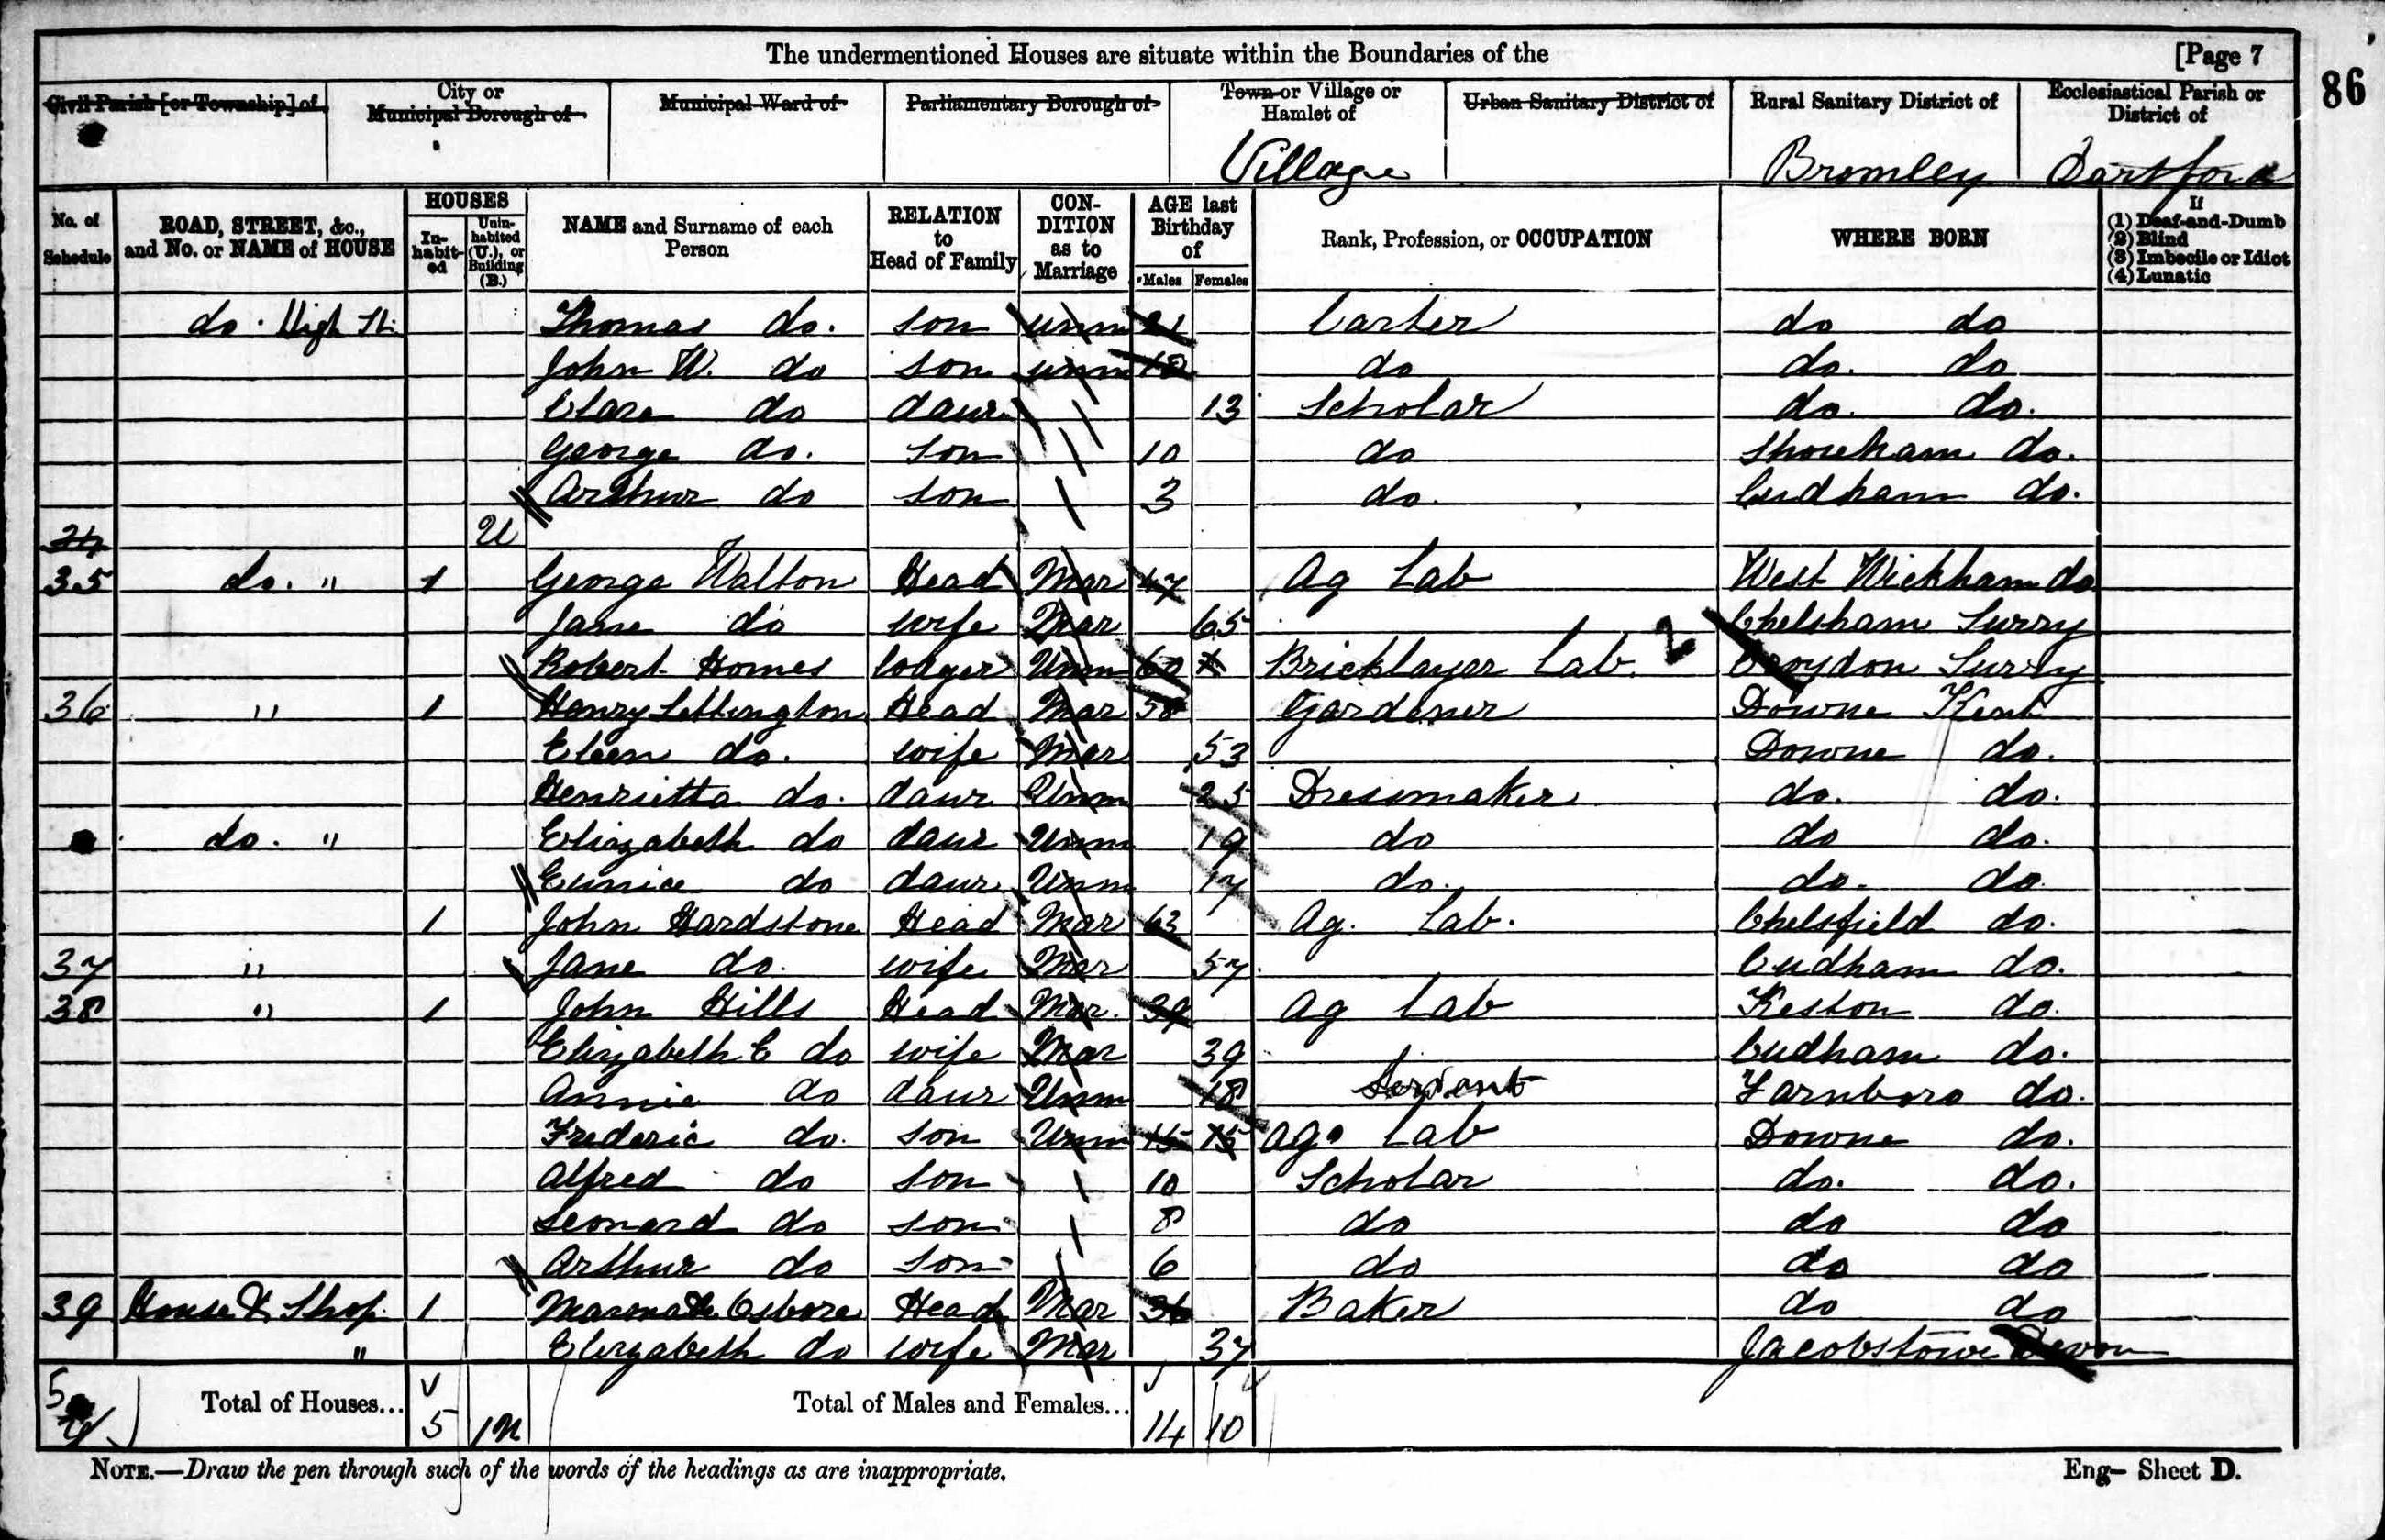 The undermentioned Houses are situate within the Boundaries of the [Page 7
86
Civil Parish [or Township] of
City or Municipal Borough of
Municipal Ward of
Parliamentary Borough of
Town or Village or Hamlet of
Urban Sanitary District of
Rural Sanitary District of
Ecclesiastical Parish or District of
Village Bromley Dartford
No. of Schedule
ROAD, STREET, &c., and No. or NAME of HOUSE
HOUSES
In-habit-ed
Unin-habited (U.), or Building (B.)
NAME and Surname of each Person
RELATION to Head of Family
CON-DITION as to Marriage
AGE last Birthday of
Males Females
Rank, Profession, or OCCUPATION
WHERE BORN
If
(1) Deaf-and-Dumb
(2) Blind
(3) Imbecile or Idiot
(4) Lunatic
do. High St. Thomas do. son unm 21 Carter do do
John W. do son unm 18 do do. do
Clara do daur 13 Scholar do. do.
George do. son 10 do Shoreham do.
Arthur do son 3 do. Cudham do.
34 U
35 do. " 1 George Walton Head Mar 47 Ag Lab West Wickham do
Jane do wife Mar 65 Chelsham Surry
Robert Homes lodger Unm 60 Bricklayer Lab. 2 Croydon Surry
36 " 1 Henry Lettington Head Mar 58 Gardener Downe Kent
Eleen do. wife Mar 53 Downe do.
Henrietta do. daur Unm 25 Dressmaker do. do.
do. " Elizabeth do daur Unm 19 do do do.
Eunice do daur Unm 17 do. do. do
1 John Hardstone Head Mar 63 Ag. Lab. Chelsfield do.
37 " Jane do. wife Mar 57 Cudham do.
38 " 1 John Hills Head Mar. 39 Ag Lab Keston do.
Elizabeth E do wife Mar 39 Cudham do.
Annie do daur Unm 18 Servant Farnboro do.
Frederic do. son Unm 15 15 Ag. Lab Downe do.
Alfred do son 10 Scholar do. do.
Leonard do son 8 do do do
Arthur do son 6 do do do
39 House & Shop 1 Osbore Head Mar 36 Baker do do
" Elizabeth do wife Mar 37 Jacobstowe Devon
5 Total of Houses... 5 Total of Males and Females... 14 10
NOTE.—Draw the pen through such of the words of the headings as are inappropriate.
Eng— Sheet D.